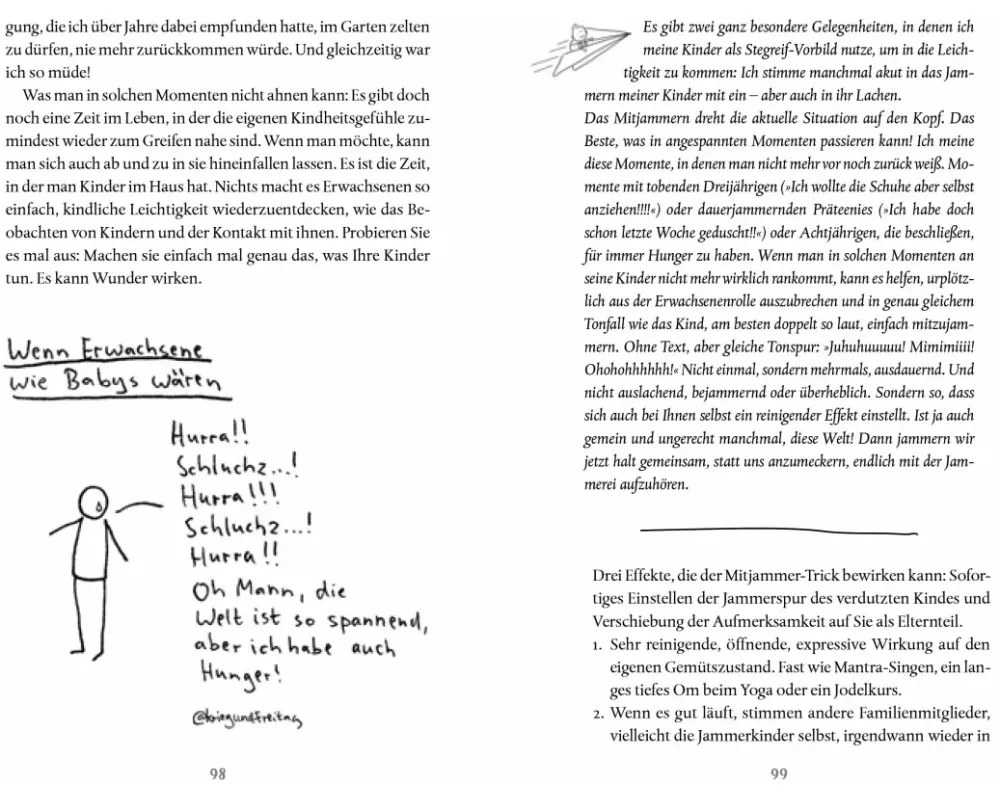 gung, die ich über Jahre dabei empfunden hatte, im Garten zelten
zu dürfen, nie mehr zurückkommen würde. Und gleichzeitig war
ich so müde!
Was man in solchen Momenten nicht ahnen kann: Es gibt doch
noch eine Zeit im Leben, in der die eigenen Kindheitsgefühle zu-
mindest wieder zum Greifen nahe sind. Wenn man möchte, kann
man sich auch ab und zu in sie hineinfallen lassen. Es ist die Zeit,
in der man Kinder im Haus hat. Nichts macht es Erwachsenen so
einfach, kindliche Leichtigkeit wiederzuentdecken, wie das Be-
obachten von Kindern und der Kontakt mit ihnen. Probieren Sie
es mal aus: Machen sie einfach mal genau das, was Ihre Kinder
tun. Es kann Wunder wirken.
Wenn Erwachsene
wie Babys wären
Hurra!!
Schluchz...!
Hurra!!!
Schluchz...!
Hurra!!
Oh Mann, die
Welt ist so spannend,
aber ich habe auch
Hunger!
@kriegundfreitag
98
Es gibt zwei ganz besondere Gelegenheiten, in denen ich
meine Kinder als Stegreif-Vorbild nutze, um in die Leich-
tigkeit zu kommen: Ich stimme manchmal akut in das Jam-
mern meiner Kinder mit ein – aber auch in ihr Lachen.
Das Mitjammern dreht die aktuelle Situation auf den Kopf. Das
Beste, was in angespannten Momenten passieren kann! Ich meine
diese Momente, in denen man nicht mehr vor noch zurück weiß. Mo-
mente mit tobenden Dreijährigen (»Ich wollte die Schuhe aber selbst
anziehen!!!!«) oder dauerjammernden Präteenies (»Ich habe doch
schon letzte Woche geduscht!!«) oder Achtjährigen, die beschließen,
für immer Hunger zu haben. Wenn man in solchen Momenten an
seine Kinder nicht mehr wirklich rankommt, kann es helfen, urplötz-
lich aus der Erwachsenenrolle auszubrechen und in genau gleichem
Tonfall wie das Kind, am besten doppelt so laut, einfach mitzujam-
mern. Ohne Text, aber gleiche Tonspur: »Juhuhuuuuu! Mimimiiii!
Ohohohhhhhh!« Nicht einmal, sondern mehrmals, ausdauernd. Und
nicht auslachend, bejammernd oder überheblich. Sondern so, dass
sich auch bei Ihnen selbst ein reinigender Effekt einstellt. Ist ja auch
gemein und ungerecht manchmal, diese Welt! Dann jammern wir
jetzt halt gemeinsam, statt uns anzumeckern, endlich mit der Jam-
merei aufzuhören.
Drei Effekte, die der Mitjammer-Trick bewirken kann: Sofor-
tiges Einstellen der Jammerspur des verdutzten Kindes und
Verschiebung der Aufmerksamkeit auf Sie als Elternteil.
1. Sehr reinigende, öffnende, expressive Wirkung auf den
eigenen Gemütszustand. Fast wie Mantra-Singen, ein lan-
ges tiefes Om beim Yoga oder ein Jodelkurs.
2. Wenn es gut läuft, stimmen andere Familienmitglieder,
vielleicht die Jammerkinder selbst, irgendwann wieder in
99